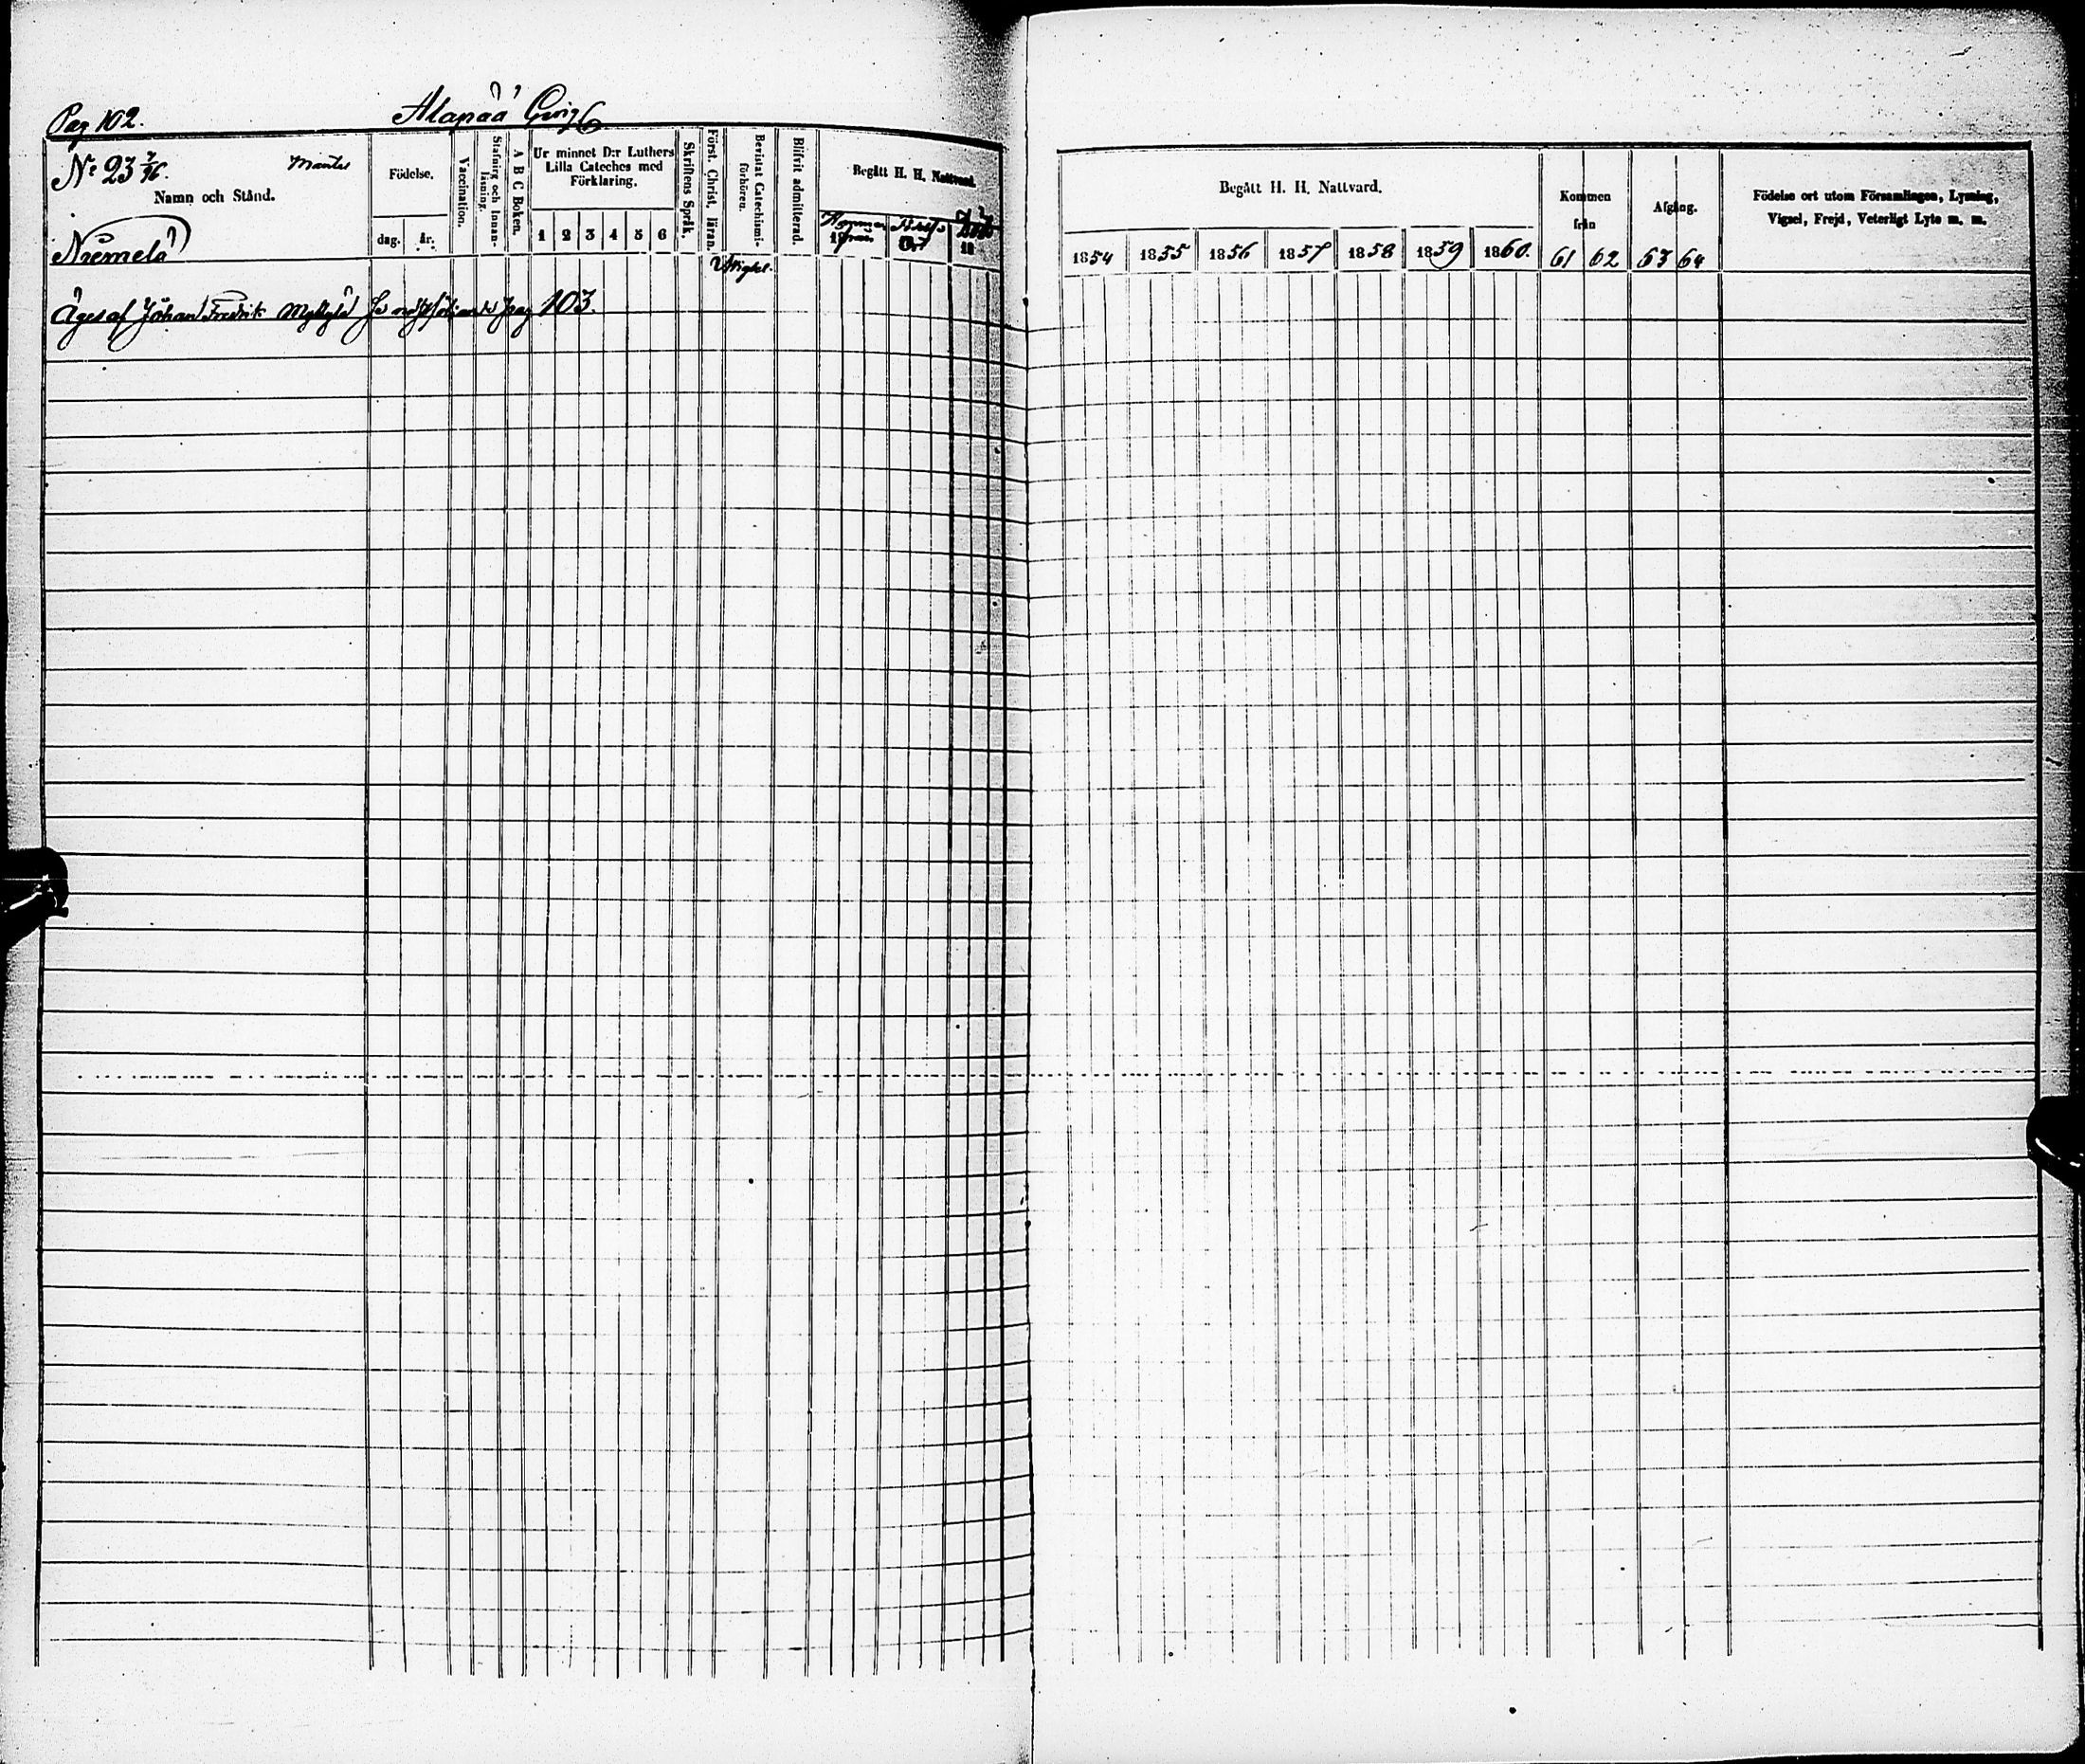 Pag 102.
Alapää
N:o 23
Mantal
Namn och Stånd.
Niemelä
Födelse.
dag. år.
Vaccination.
Stafning och Innanläsning.
A B C Boken.
Ur minnet D:r Luthers
Lilla Cateches med
Förklaring.
1 2 3 4 5 6
Skriftens Språk.
Först. Christ. läran.
Bevistat Catechismiförhören.
Blifvit admitterad.
Begått H. H. Nattvard.
18 18
Äges af Johan Fredrik Myllylä Se nästföljande pag 103.
Begått H. H. Nattvard.
1854 1855 1856 1857 1858 1859 1860.
Kommen
från
61 62
Afgång.
63 64
Födelse ort utom Församlingen, Lysning,
Vigsel, Frejd, Veterligt Lyte m. m.